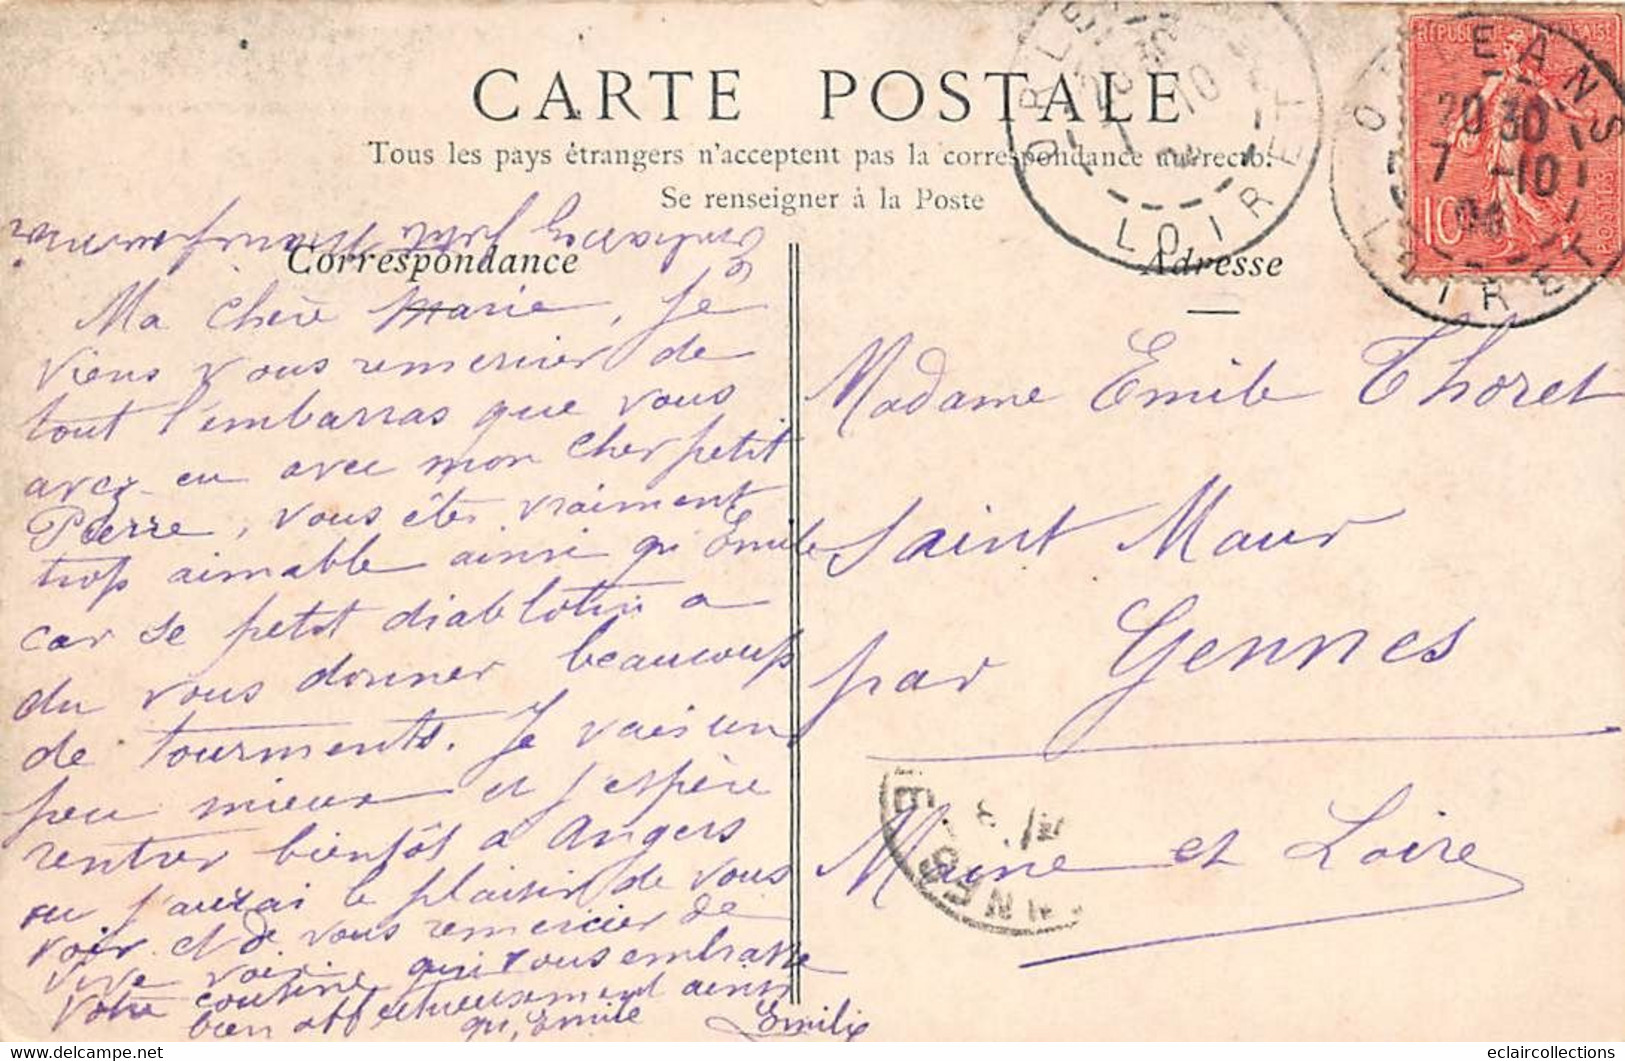 CARTE POSTALE
Tous les pays étrangers n'acceptent pas la correspondance au recto.
Se renseigner à la Poste
Correspondance
Adresse
Ma chère Marie, je
viens vous remercier de
tout l'embarras que vous
avez eu avec mon cher petit
Pierre, vous êtes vraiment
trop aimable ainsi qu'Emile
car se petit diablotin a
du vous donner beaucoup
de tourments. Je vais un
peu mieux et j'espère
rentrer bientôt à Angers
ou j'aurai le plaisir de vous
voir et de vous remercier de
vive voix
Votre cousine qui vous embrasse
bien affectueusement ainsi
qu'Emile Emilie
Madame Emile Thoret
Saint Maur
par Gennes
Maine et Loire
REPUBLIQUE FRANÇAISE
10
POSTES
ORLEANS
20 30
7 -10
LOIRET
ORLEANS
7 10
LOIRET
eclaircollections